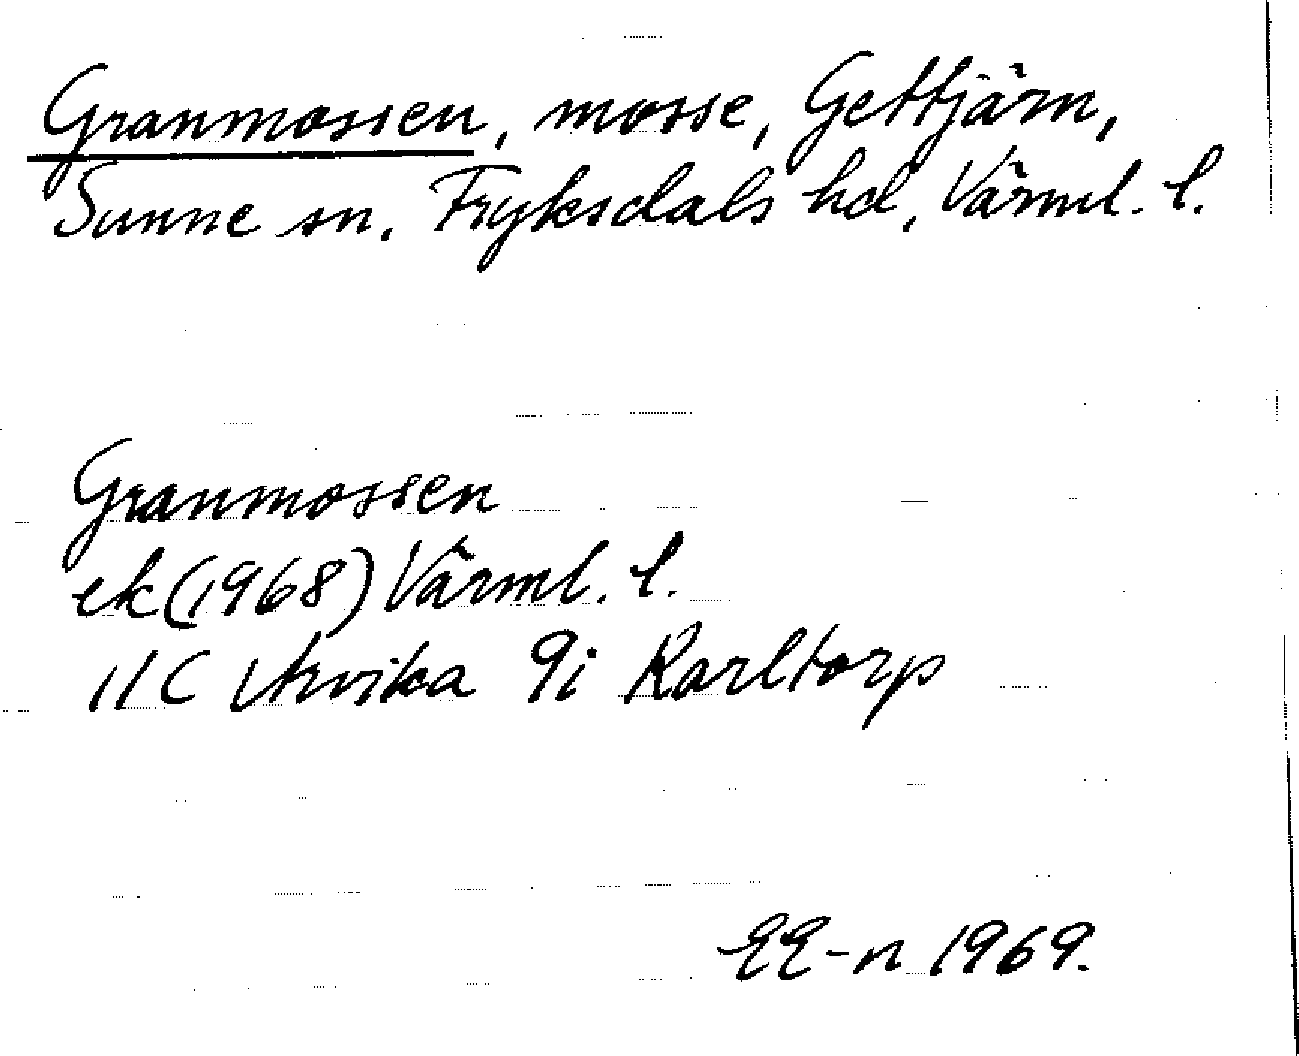 Granmossen, mosse, Gettjärn,
Sunne sn. Fryksdals hd, Värml. l.
Granmossen
ek (1968) Värml. l.
11C Arvika 9i Karltorp
EE-n 1969.